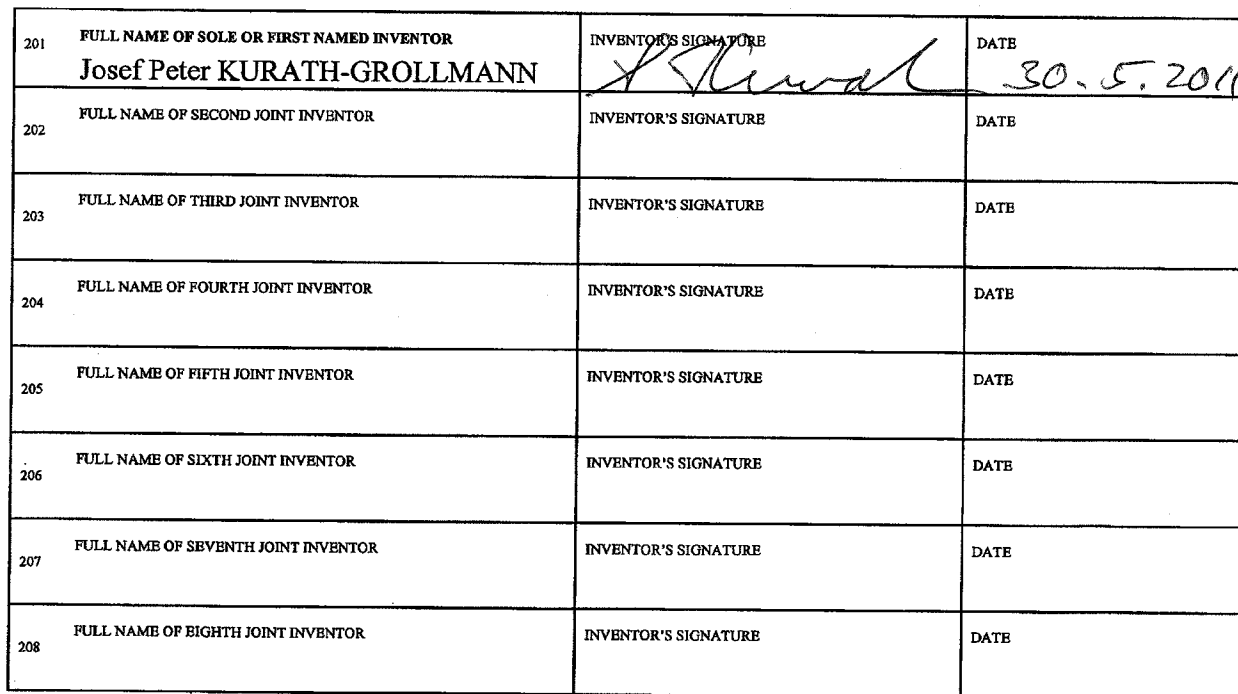 201 FULL NAME OF SOLE OR FIRST NAMED INVENTOR INVENTOR'S SIGNATURE DATE
Josef Peter KURATH-GROLLMANN 30. 5. 2011
202 FULL NAME OF SECOND JOINT INVENTOR INVENTOR'S SIGNATURE DATE
203 FULL NAME OF THIRD JOINT INVENTOR INVENTOR'S SIGNATURE DATE
204 FULL NAME OF FOURTH JOINT INVENTOR INVENTOR'S SIGNATURE DATE
205 FULL NAME OF FIFTH JOINT INVENTOR INVENTOR'S SIGNATURE DATE
206 FULL NAME OF SIXTH JOINT INVENTOR INVENTOR'S SIGNATURE DATE
207 FULL NAME OF SEVENTH JOINT INVENTOR INVENTOR'S SIGNATURE DATE
208 FULL NAME OF EIGHTH JOINT INVENTOR INVENTOR'S SIGNATURE DATE